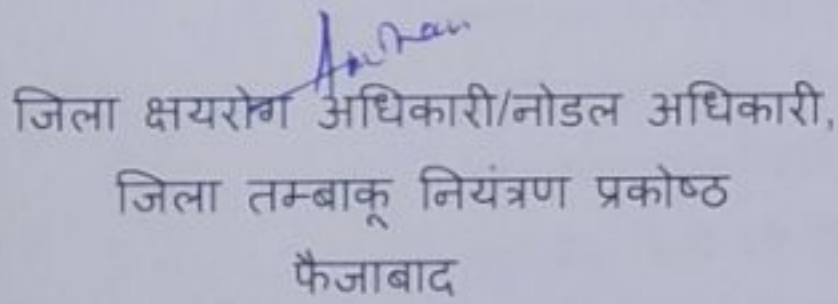 जिला क्षयरोग अधिकारी/नोडल अधिकारी,
जिला तम्बाकू नियंत्रण प्रकोष्ठ
फैजाबाद